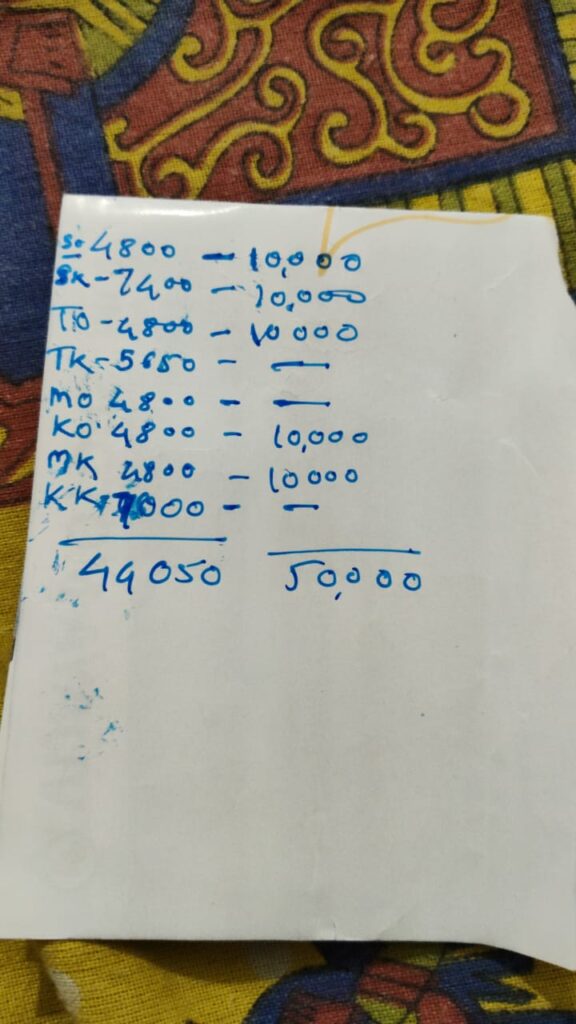 So 4800 — 10,000
SK - 7400 - 10,000
TO - 4800 - 10000
TK - 5650 - —
MO 4800 - —
KO 4800 - 10,000
MK 4800 - 10000
KK 7000 - —
44050 50,000